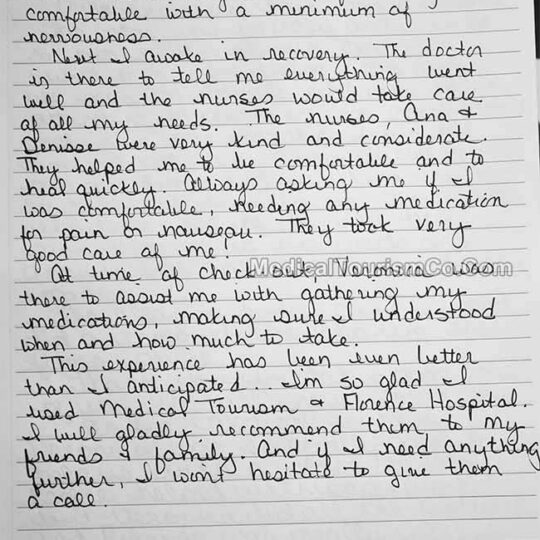 comfortable with a minimum of
nervousness.
Next I awake in recovery. The doctor
is there to tell me everything went
well and the nurses would take care
of all my needs. The nurses, Ana &
Denisse were very kind and considerate.
They helped me to be comfortable and to
heal quickly. Always asking me if I
was comfortable, needing any medication
for pain or nauseau. They took very
good care of me.
At time of check out, Veronica was
MedicalTourismCo.Com
there to assist me with gathering my
medications, making sure I understood
when and how much to take.
This experience has been even better
than I anticipated.. I'm so glad I
used Medical Tourism & Florence Hospital.
I will gladly recommend them to my
friends & family. And if I need anything
further, I won't hesitate to give them
a call.